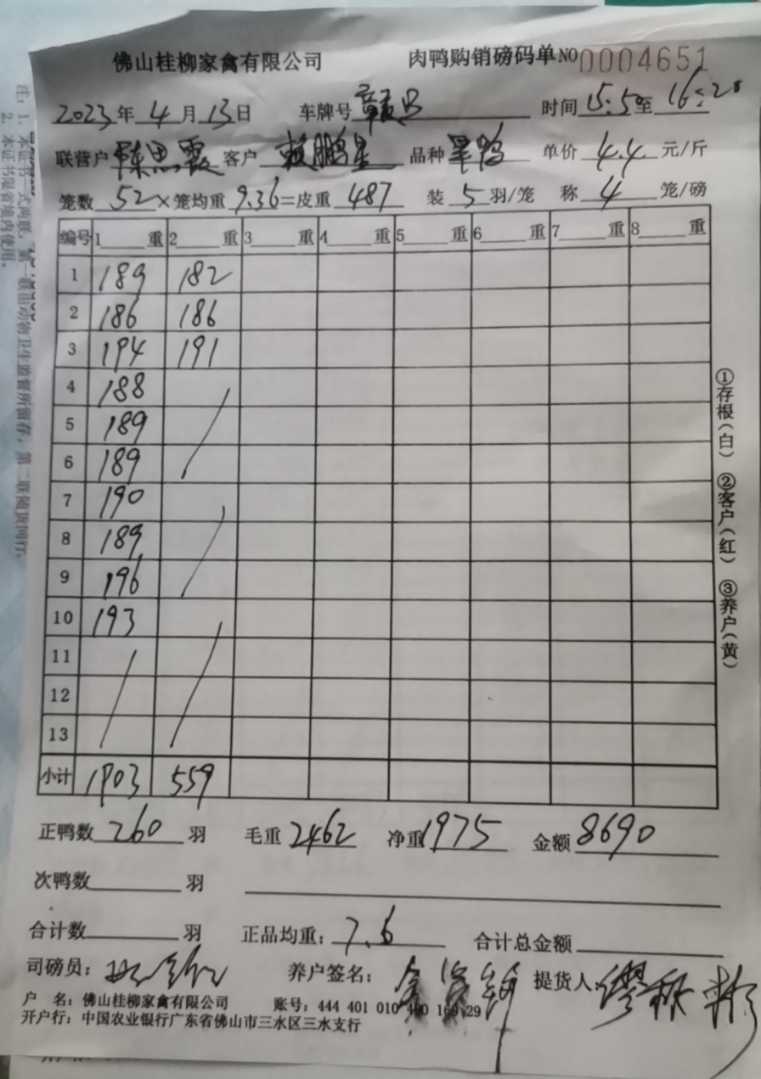 佛山桂柳家禽有限公司 肉鸭购销磅码单 NO 0004651
2023年 4月 13日 车牌号 时间 15:50至 16:20
联营户 陈思霞 客户 赖鹏星 品种 单价 4.4 元/斤
笼数 52 ×笼均重 9.36=皮重 487 装 5 羽/笼 称 4 笼/磅
编号 1 重 2 重 3 重 4 重 5 重 6 重 7 重 8 重
1 189 182
2 186 186
3 194 191
4 188
5 189
6 189
7 190
8 189
9 196
10 193
11
12
13
小计 1903 559
正鸭数 260 羽 毛重 2462 净重 1975 金额 8690
次鸭数 羽
合计数 羽 正品均重: 7.6 合计总金额
司磅员: 养户签名: 提货人
户 名:佛山桂柳家禽有限公司 账号:444 401 010 400 29
开户行:中国农业银行广东省佛山市三水区三水支行
①存根(白) ②客户(红) ③养户(黄)
注:1.本证书一式两联,第一联由动物卫生监督所留存,第二联随货同行。
2.本证书限省境内使用。